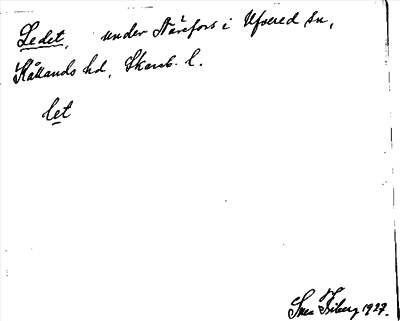 Ledet, under Närefors i Ufvered sn,
Kållands hd, Skarab. l.
let
Sven Friberg 1927.